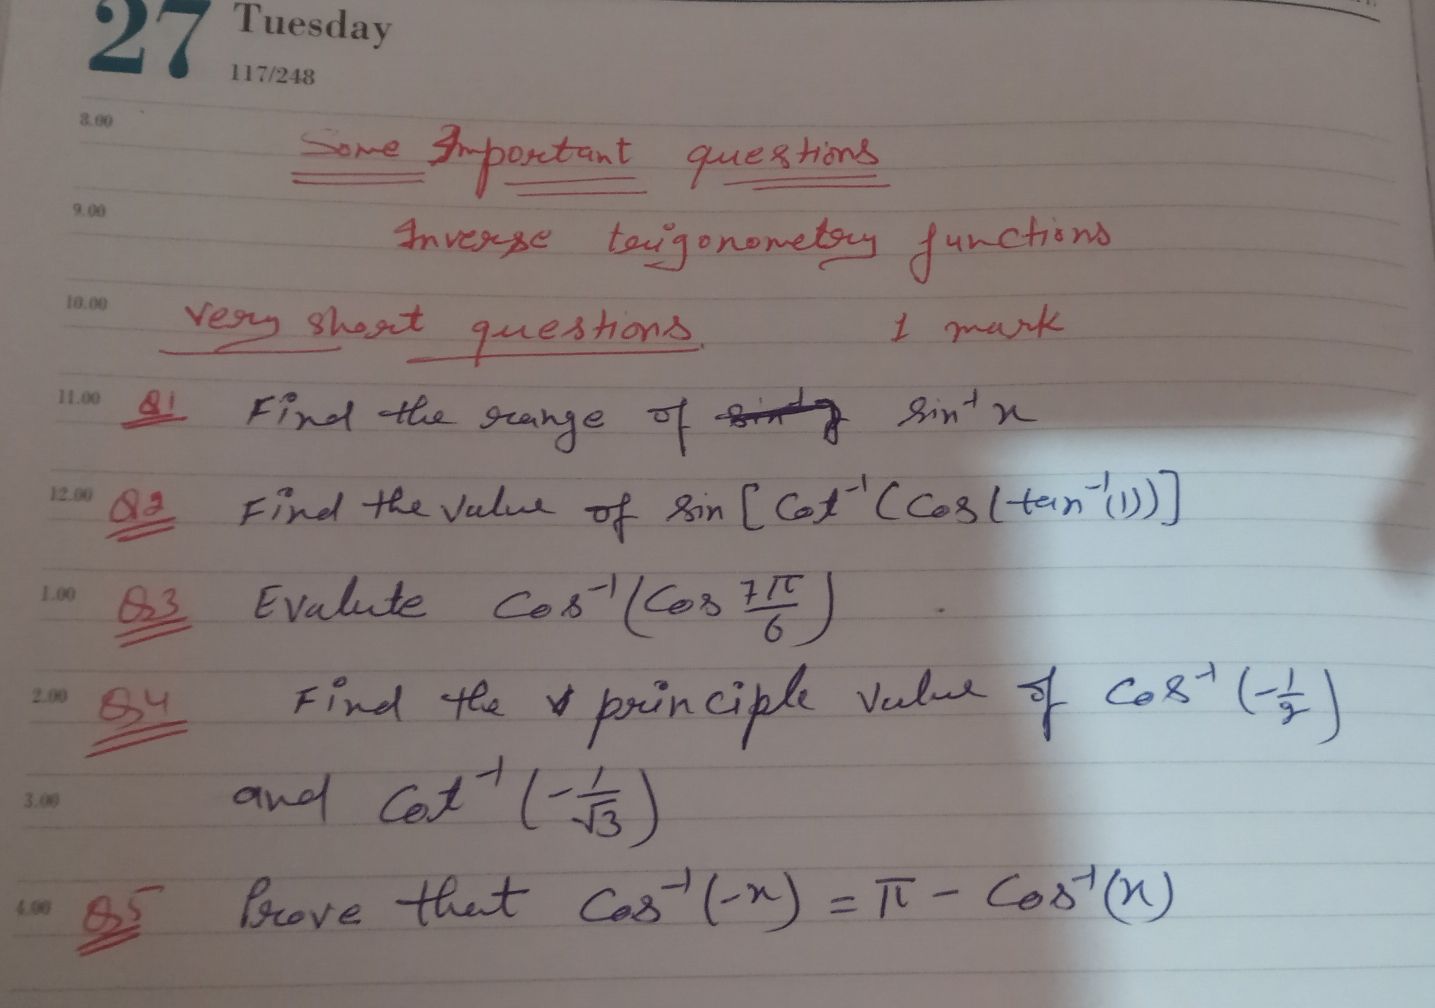 27 Tuesday
117/248
8.00
Some Important questions
9.00
Inverse trigonometry functions
10.00
very short questions. 1 mark
11.00 Q1 Find the range of sin⁻¹x
12.00 Q2 Find the value of sin [Cot⁻¹(Cos(tan⁻¹(1))]
1.00 Q3 Evalute Cos⁻¹(Cos 7π/6)
2.00 Q4 Find the principle value of Cos⁻¹(-1/2)
3.00 and Cot⁻¹(-1/√3)
4.00 Q5 Prove that Cos⁻¹(-x) = π - Cos⁻¹(x)